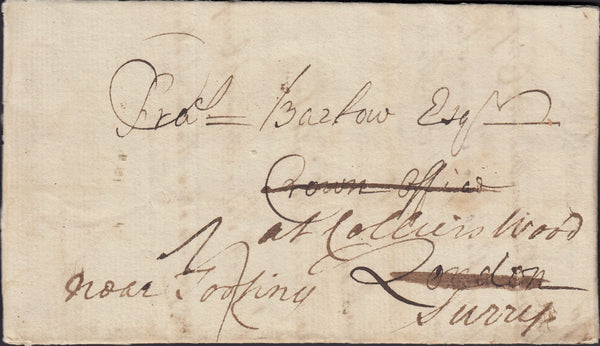 Frdk Barlow Esqr
Crown Office
at Colliers Wood
near Tooting
London
Surry